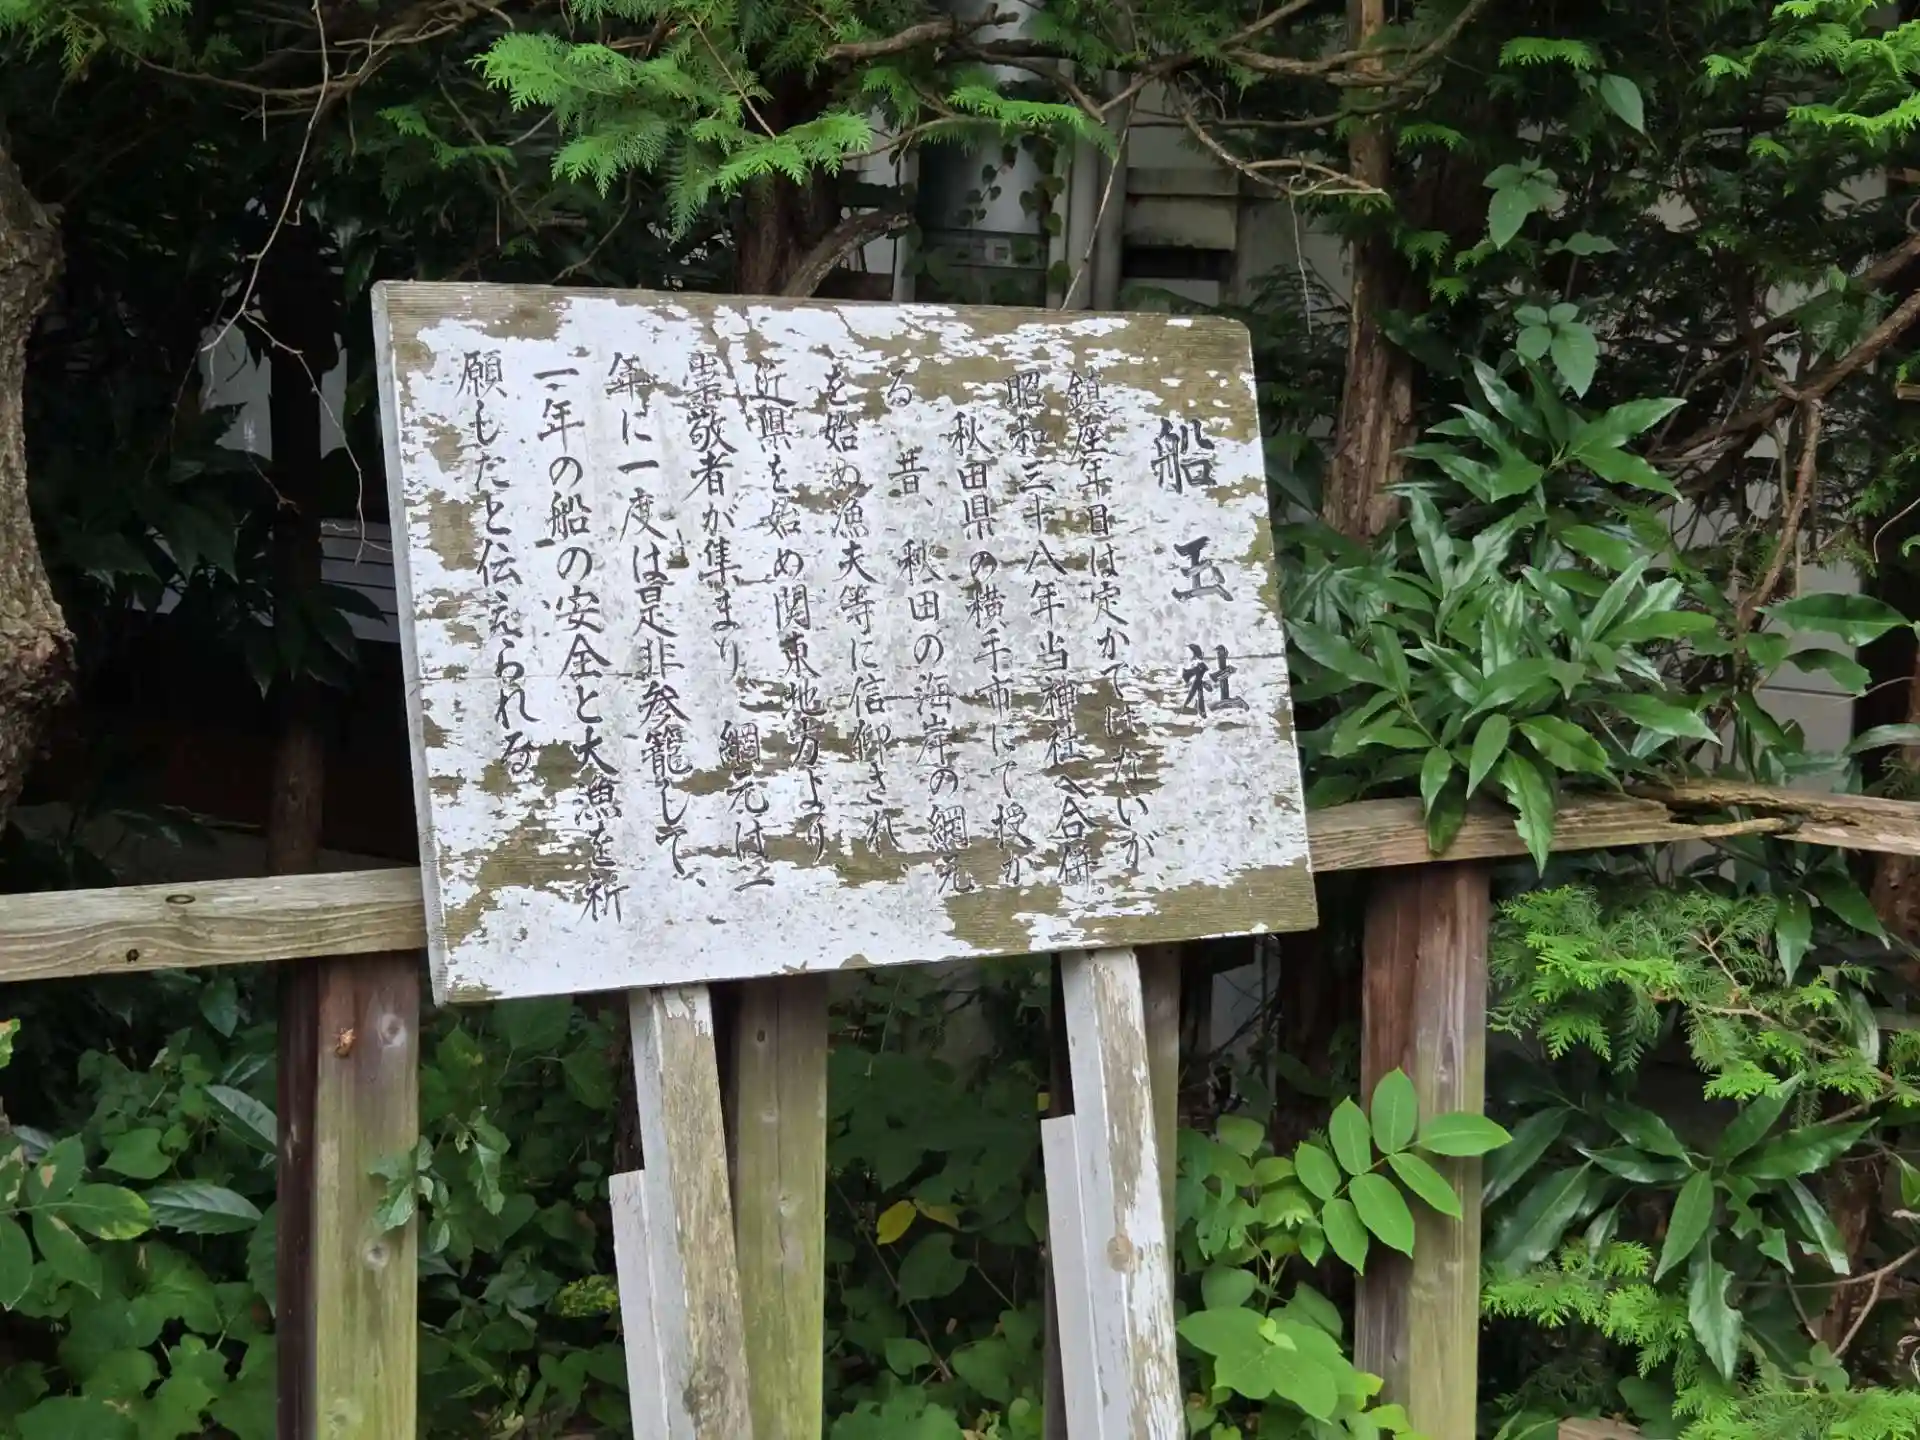 船玉社
鎮座年目は定かではないが
昭和三十八年当神社へ合併。
秋田県の横手市にて授か
る。昔、秋田の海岸の網元
を始め漁夫等に信仰され、
近県を始め関東地方より
崇敬者が集まり、網元は二
年に一度は是非参籠して、
一年の船の安全と大漁を祈
願したと伝えられる